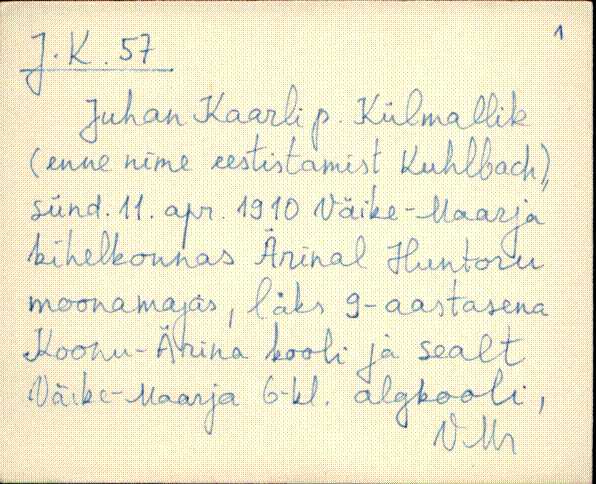 1
J. K. 57
Juhan Kaarli p. Külmallik
(enne nime eestistamist Kuhlbach),
sünd. 11. apr. 1910 Väike-Maarja
kihelkonnas Ärinal Huntoru
moonamajas, läks 9-aastasena
Koonu-Ärina kooli ja sealt
Väike-Maarja 6-kl. algkooli,
VMr